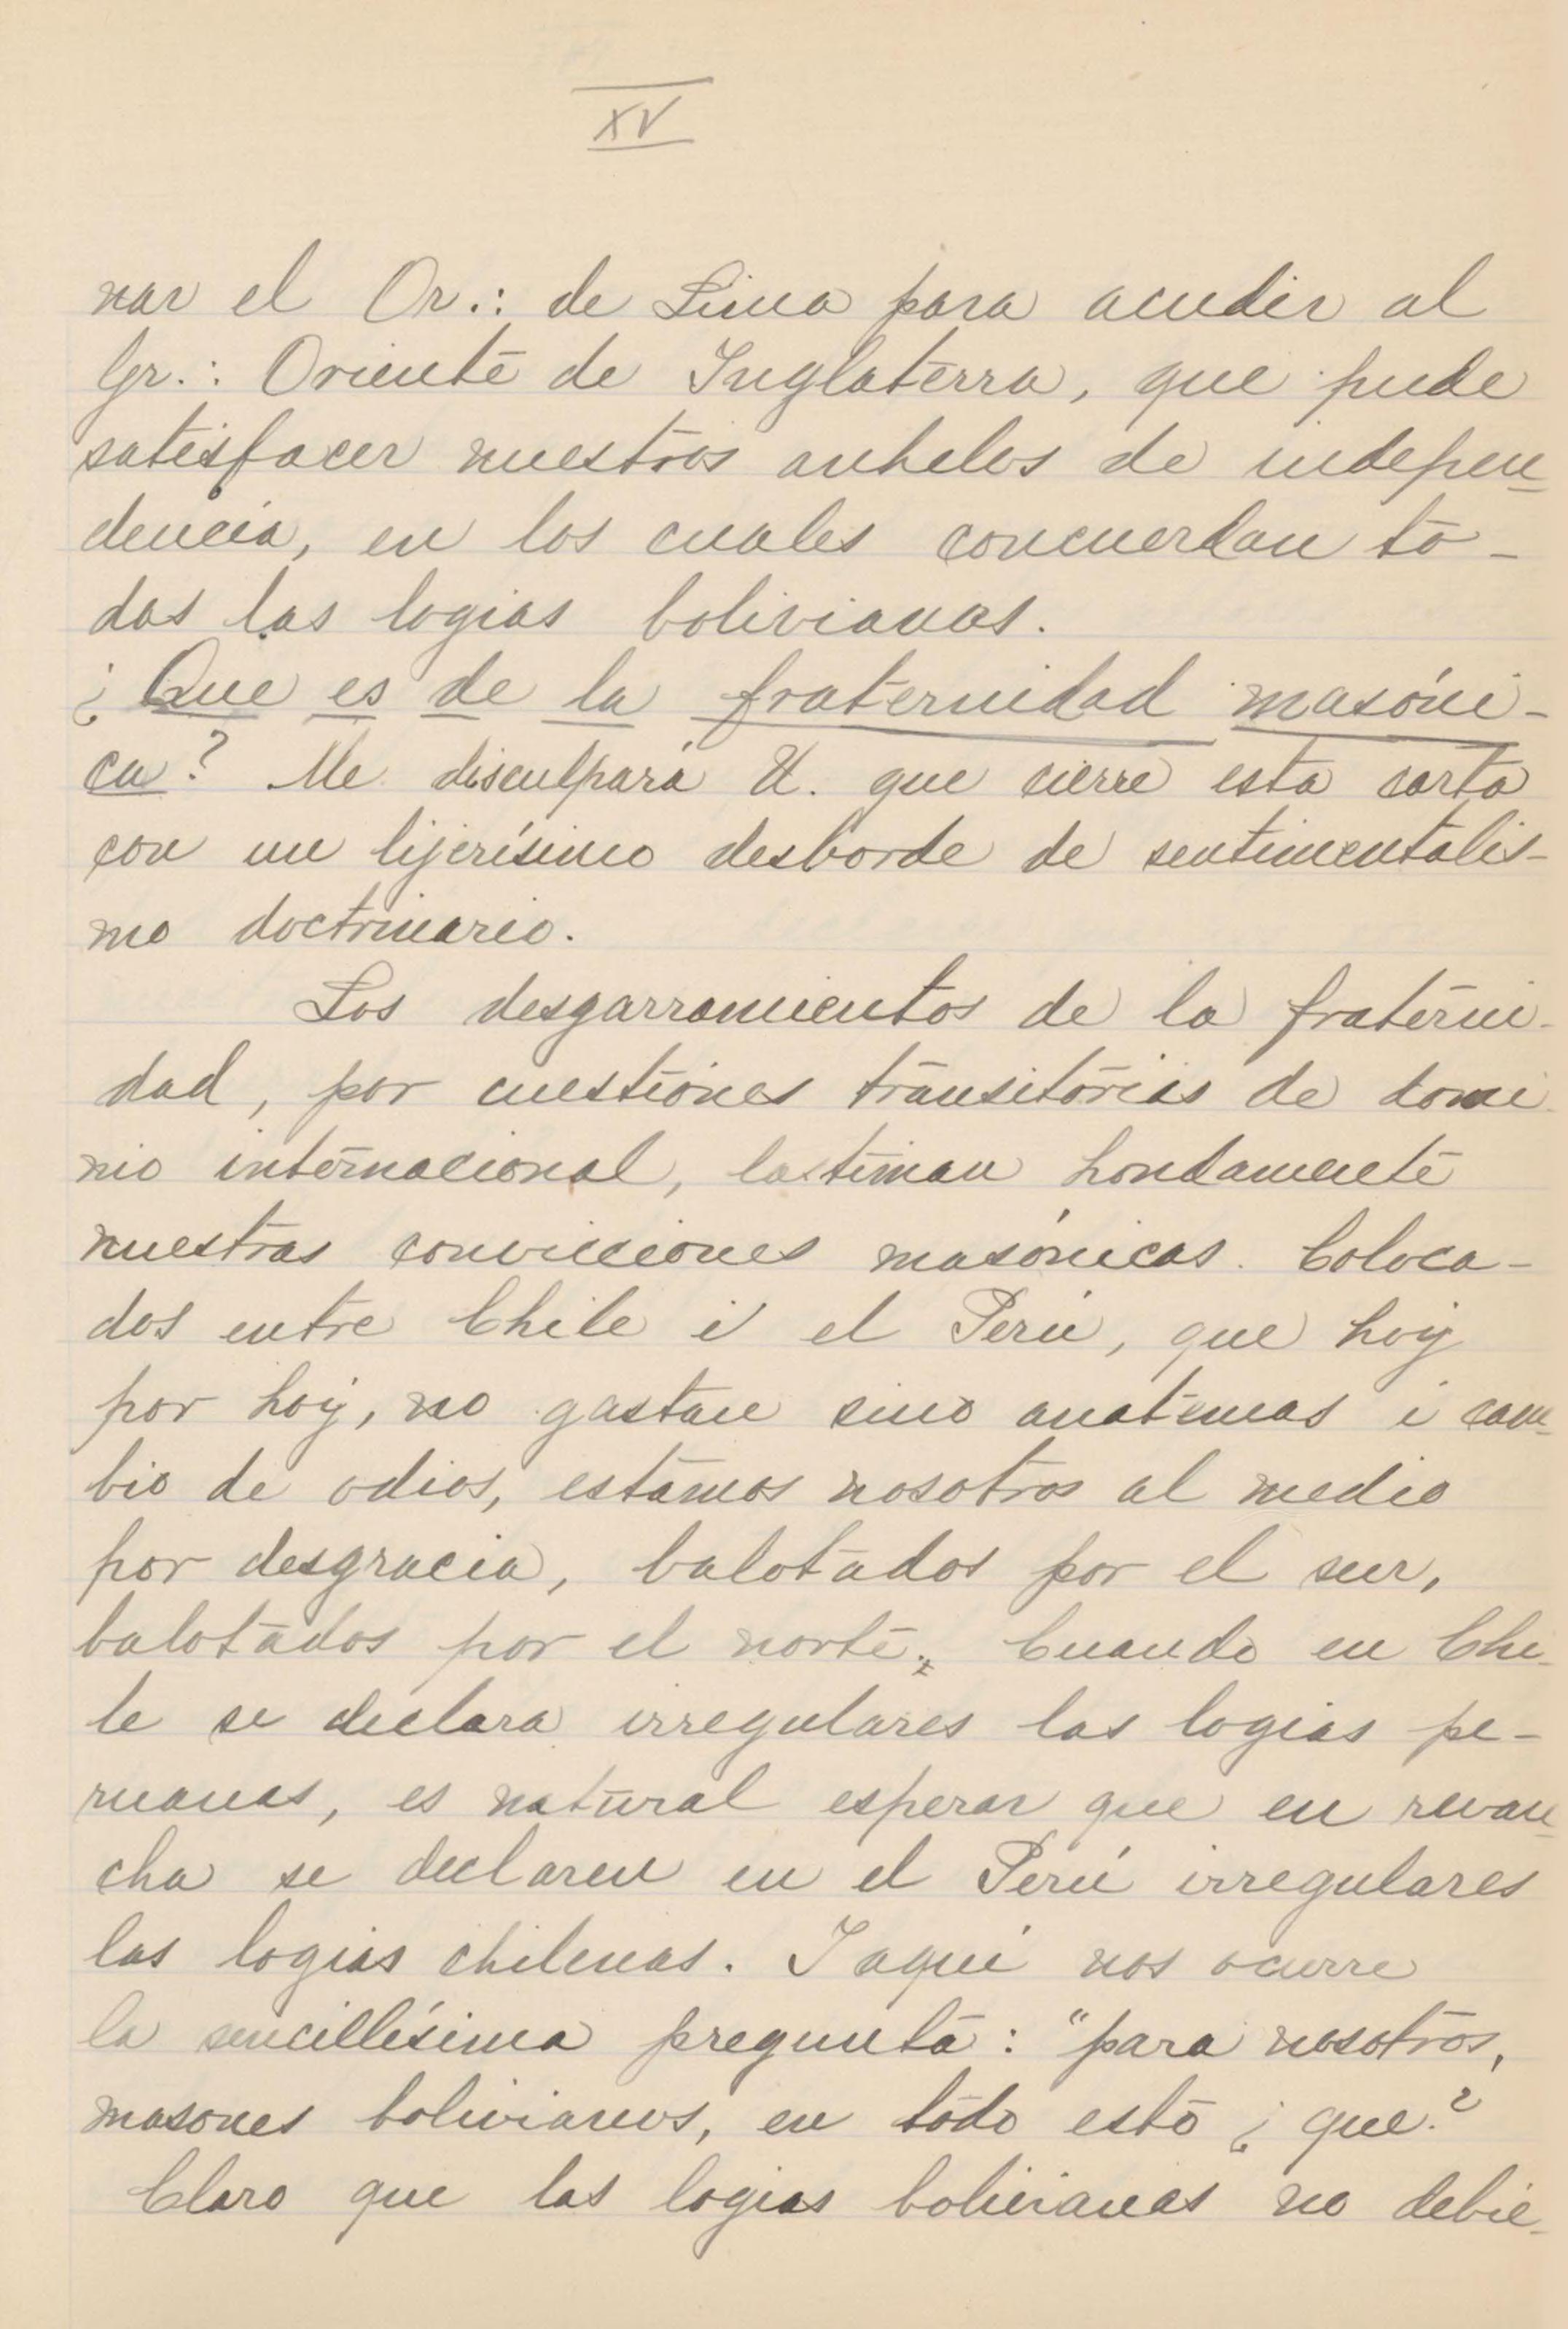 XV
nar el Or.: de Lima para acudir al
Gr.: Oriente de Inglaterra, que pude
satisfacer nuestros anhelos de indepen-
dencia, en los cuales concuerdan to-
das las logias bolivianas.
¿Que es de la fraternidad masóni-
ca? Me disculpará U. que cierre esta carta
con un lijerísimo desborde de sentimentalis-
mo doctrinario.
Los desgarramientos de la fraterni-
dad, por cuestiones transitorias de domi
nio internacional, lastiman hondamente
nuestras convicciones masónicas. Coloca-
dos entre Chile i el Perú, que hoy
por hoy, no gastan sino anatemas i cam-
bio de odios, estamos nosotros al medio
por desgracia, balotados por el sur,
balotados por el norte. Cuando en Chi-
le se declara irregulares las logias pe-
ruanas, es natural esperar que en revan-
cha se declaren en el Perú irregulares
las logias chilenas. I aquí nos ocurre
la sencillísima pregunta: "para nosotros,
masones bolivianos, en todo esto ¿que?
Claro que las logias bolivianas no debie-